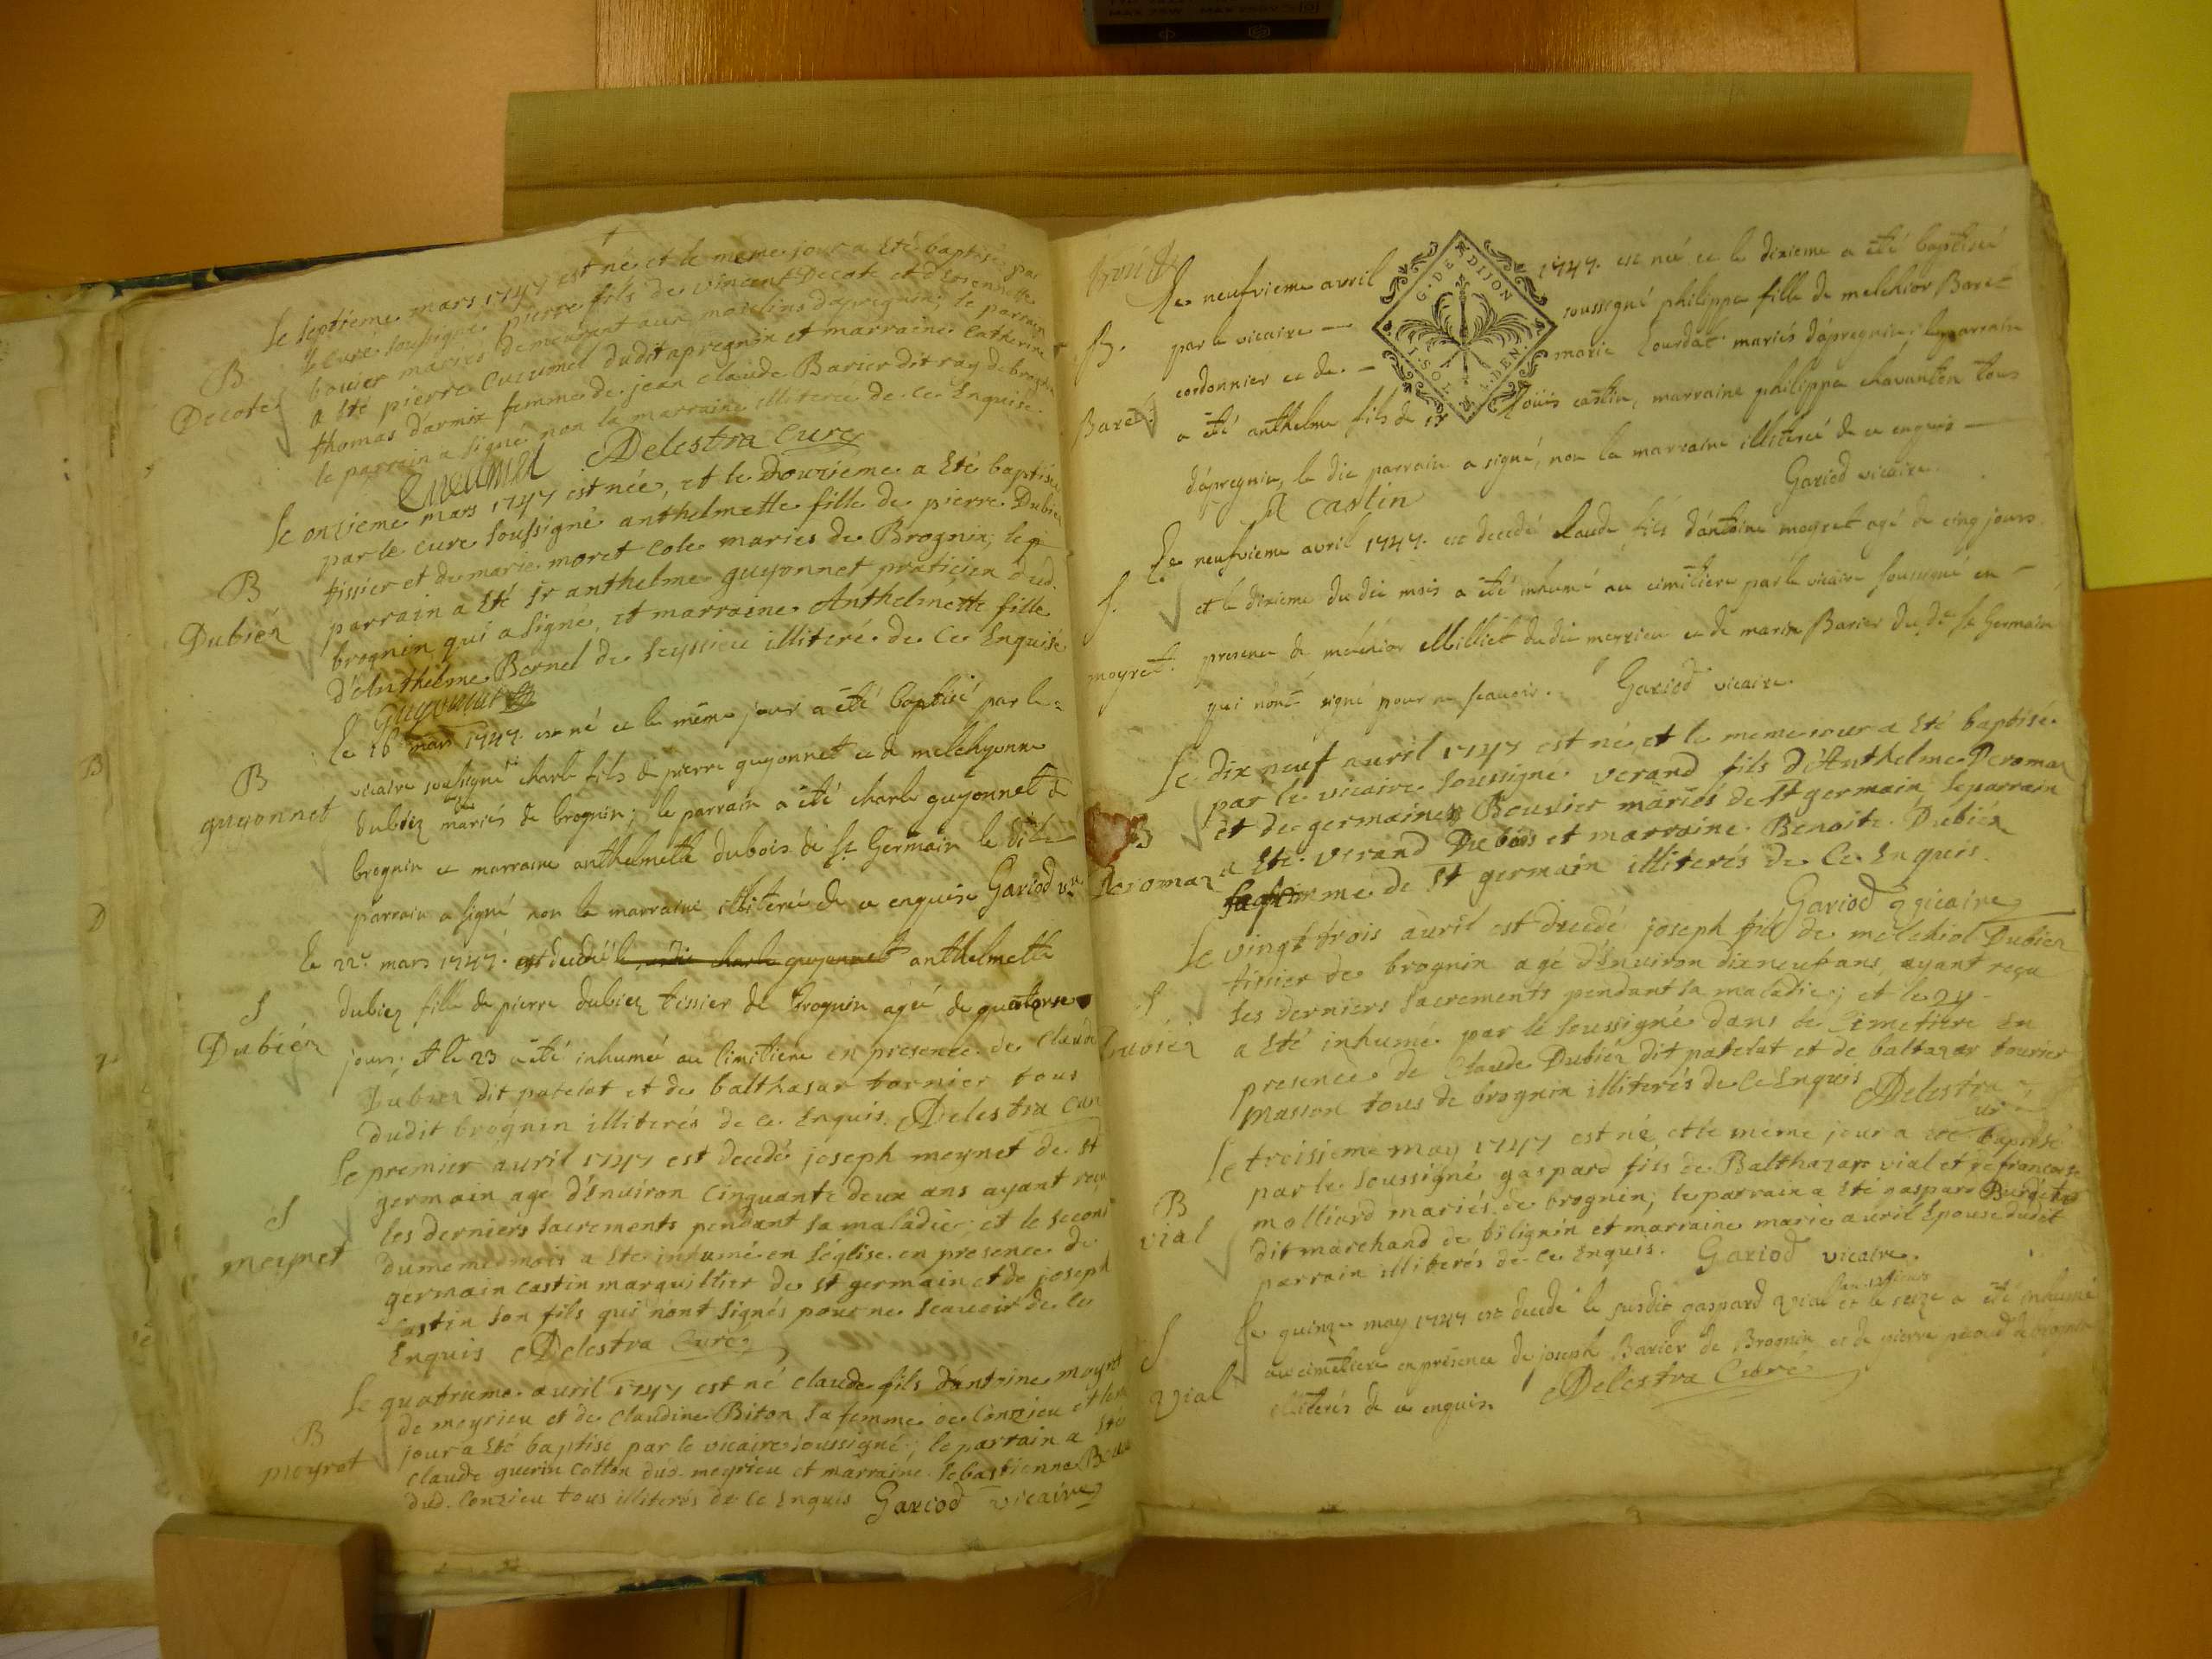 Le septieme mars 1747 est né et le meme jour a Eté baptisé par
B le Curé soussigné pierre fils de vincent Decote et d'Estiennette
Decote bouvier mariés demeurant aux moulins d'apregnin; le parrain
a Eté pierre Cucumel dudit apregnin et marraine Catherine
thomas d'armix femme de jean claude Barier dit ray de brognin
le parrain a signé non la marraine illiteré de ce Enquise.
Cucumel Delestra Curé
Le onzieme mars 1747 est née, et le Douzieme a Eté baptisée
par le curé soussigné anthelmette fille de pierre Dubiez
B tissier et de marie moret Cole mariés de Brognin; le p
Dubiéz parrain a Eté sr anthelme guyonnet praticien dud.
brognin qui a signé, et marraine Anthelmette fille
d'Anthelme Bornel de seyssieu illiteré de Ce Enquise
Guyonnet
le 16 mars 1747. est né et le même jour a été baptisé par le
B vicaire soussigné charle fils de pierre guyonnet et de melchyonne
guyonnet dubiez mariés de brognin; le parrain a été charle guyonnet de
brognin et marraine anthelmette dubois de st Germain le dit
parrain a signé non la marraine illiterée de ce enquise Gariod vic
le 22e mars 1747. est decedé anthelmette
S dubiez fille de pierre dubiez tissier de brognin agée de quatorse
Dubiéz jours; et le 23 a été inhumée au Cimitiere en presence de Claude
Dubiez dit patelat et de balthasar tornier tous
dudit brognin illiterés de ce Enquis. Delestra Curé
Le premier auril 1747 est decedé joseph meynet de st
germain agé d'Enuiron Cinquante deux ans ayant reçu
S les derniers sacrements pendant sa maladie; et le second
meynet du meme mois a Eté inhumé en l'église en presence de
germain castin marguillier de st germain et de joseph
Castin son fils qui n'ont signés pour ne sçauoir de ce
Enquis Delestra Curé
Le quatrieme auril 1747 est né claude fils d'antoine moyret
de meyrieu et de Claudine Biton sa femme de Conzieu et le m
B jour a Eté baptisé par le vicaire soussigné; le parrain a Eté
moyret claude guerin Cotton dud. meyrieu et marraine sebastienne
dud. Conzieu tous illiterés de ce Enquis Gariod vicaire
Le neufvieme avril 1747. est née et le dixieme a été baptisée
B. par le vicaire — soussigné philippa fille de melchior Baret
cordonnier et de — marie Lourdat mariés d'apregnin; le parrain
Baret. a été anthelme fils de sr Loüis castin, marraine philippa chavanton tous
d'apregnin, le dit parrain a signé, non la marraine illiterée de ce enquis —
A Castin Gariod vicaire
G. DE DIJON
I. SOL 4. DEN.
Le neufvieme avril 1747. est decedé claude fils d'antoine moyret agé de cinq jours
S. et le dixieme du dit mois a été inhumé au cimitiere par le vicaire soussigné en
moyret. presence de melchior Milliet dudit meyrieu et de marin Barier du dt st Germain
qui n'ont signé pour ne scauoir. Gariod vicaire.
Le dix neuf auril 1747 est né, et le meme jour a Eté baptisé
par le vicaire soussigné verand fils d'Anthelme Deromaz
B et de germaine Bouvier mariés de st germain, le parrain
Deromaz a Eté verand Dubois et marraine Benoite Dubiéz
sa femme de st germain illiterés de Ce Enquis.
Gariod vicaire
Le vingt trois auril est decedé joseph fils de melchiol Dubiez
tissier de brognin agé d'Enuiron dix neuf ans, ayant reçu
S les derniers sacrements pendant sa maladie; et le 24
Dubiéz a Eté inhumé par le soussigné dans le Cimetiere En
presence de Claude Dubiéz dit patelat et de baltazar tournier
masson tous de brognin illiterés de Ce Enquis Delestra
Le troisieme may 1747 est né et le meme jour a eté baptisé
par le soussigné gaspard fils de Balthazar vial et de francoise
B molliard mariés de brognin; le parrain a Eté gaspard
vial dit marchand de bilignin et marraine marie auril Epouse dudit
parrain illiterés de ce Enquis. Gariod vicaire.
Le quinze may 1747 est decedé le susdit gaspard vial et le seize a été inhumé
S au cimetiere en presence de joseph Barier de Brognin et de pierre de brognin
Vial illiterés de ce enquis Delestra Curé